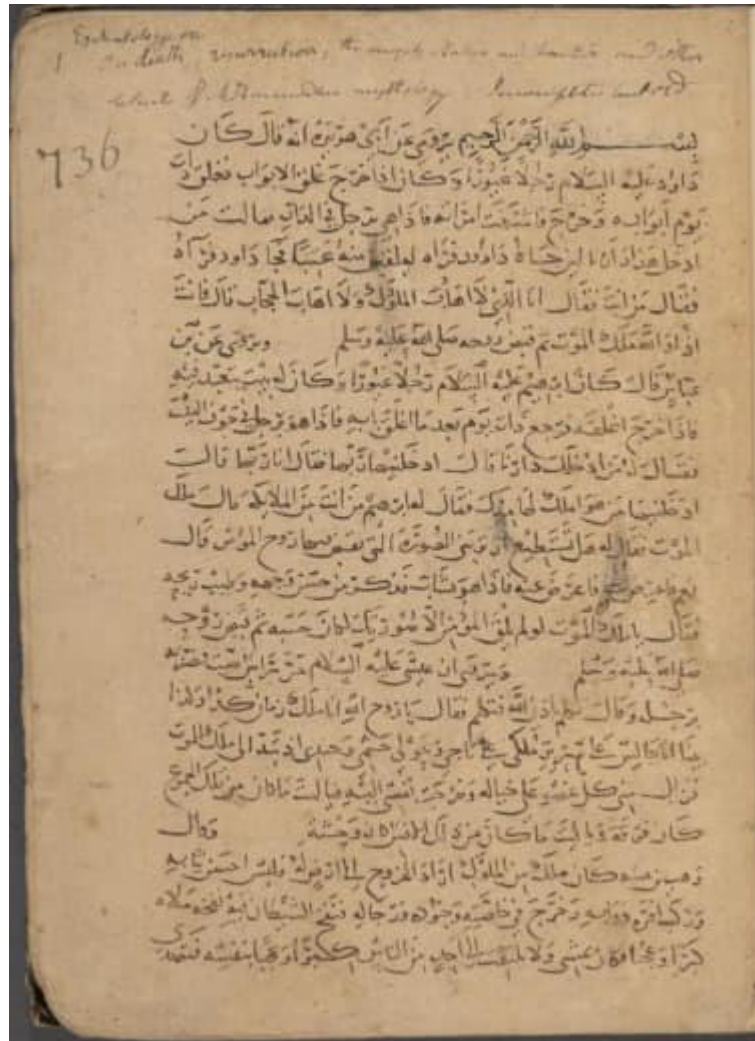 Eschatology on
1 On death, resurrection, the angels and other
of Mohammedan mythology. Incomplete at end
736
بسم الله الرحمن الرحيم يروى عن أبي هريرة انه قال كان
داود عليه السلام رجلا غيورا وكان اذا خرج غلق الابواب فغلق ذات
يوم ابوابه وخرج فاشرفت امرأته فاذا هي برجل في الدار فقالت من
ادخل هذا الئن جاء داود فرآه ليلقين منه عنتا فجا داود فرآه
فقال من انت فقال انا الذي لا اهاب الملوك ولا اهاب الحجاب قال فانت
اذا والله ملك الموت ثم قبض روحه صلى الله عليه وسلم ويروى عن بن
عباس قال كان ابرهيم عليه السلام رجلا غيورا وكان له بيت يتعبد فيه
فاذا خرج اغلقه فرجع ذات يوم بعد ما اغلق بابه فاذا هو برجل في جوف البيت
فقال له من ادخلك دارنا قال ادخلنيها ربها فقال انا ربها قال
ادخلنيها من هو املك لها منك فقال له ابرهيم من انت من الملايكة قال ملك
الموت فقال له هل تستطيع ان تريني الصورة التي تقبض فيها روح المؤمن قال
نعم فاعرض عني فاعرض عنه فاذا هو بشاب فذكر من حسن وجهه وطيب ريحه
فقال يا ملك الموت لو لم يلق المؤمن الا صورتك لكان حسبه ثم قبض روحه
صلى الله عليه وسلم ويروى ان عيسى عليه السلام مر براس فضربه
برجله وقال تكلم باذن الله فتكلم فقال يا روح الله انا ملك زمان كذا وكذا
بينا انا جالس على سرير ملكي علي تاجي وحولي حشمي وجندي اذ بدا لي ملك الموت
فزال مني كل عضو على حياله وخرجت نفسي اليه فياليت ما كان من تلك الجموع
كان فرقة وياليت ما كان من ذلك الانس كان وحشة وقال
وهب بن منبه كان ملك من الملوك اراد الخروج الى فلبس احسن ثيابه
وركب افره دوابه وخرج في خاصته وجنوده ورجاله فنفخ الشيطان فيه نفخة ملاه
كبرا وعجبا فكان يمشي ولا يلتفت الى احد من الناس كبرا وعجبا بنفسه